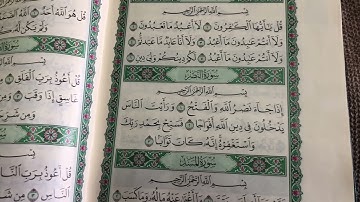 قُلْ يَٰٓأَيُّهَا ٱلْكَٰفِرُونَ ۝ لَآ أَعْبُدُ مَا تَعْبُدُونَ ۝
وَلَآ أَنتُمْ عَٰبِدُونَ مَآ أَعْبُدُ ۝ وَلَآ أَنَا۠ عَابِدٌ مَّا عَبَدتُّمْ ۝
وَلَآ أَنتُمْ عَٰبِدُونَ مَآ أَعْبُدُ ۝ لَكُمْ دِينُكُمْ وَلِىَ دِينِ ۝
سُورَةُ النَّصْرِ
بِسْمِ ٱللَّهِ ٱلرَّحْمَٰنِ ٱلرَّحِيمِ
إِذَا جَآءَ نَصْرُ ٱللَّهِ وَٱلْفَتْحُ ۝ وَرَأَيْتَ ٱلنَّاسَ
يَدْخُلُونَ فِى دِينِ ٱللَّهِ أَفْوَاجًا ۝ فَسَبِّحْ بِحَمْدِ رَبِّكَ
وَٱسْتَغْفِرْهُ إِنَّهُۥ كَانَ تَوَّابًۢا ۝
سُورَةُ المَسَدِ
بِسْمِ ٱللَّهِ ٱلرَّحْمَٰنِ ٱلرَّحِيمِ
مَآ أَغْنَىٰ عَنْهُ مَالُهُۥ وَمَا كَسَبَ
قُلْ هُوَ ٱللَّهُ أَحَدٌ
وَلَمْ يَكُن لَّهُۥ
سُورَةُ
بِسْمِ
قُلْ أَعُوذُ بِرَبِّ ٱلْفَلَقِ
غَاسِقٍ إِذَا وَقَبَ
وَمِن شَرِّ
بِسْمِ
قُلْ أَعُوذُ بِرَبِّ
ٱلنَّاسِ ۝ مِن شَرِّ